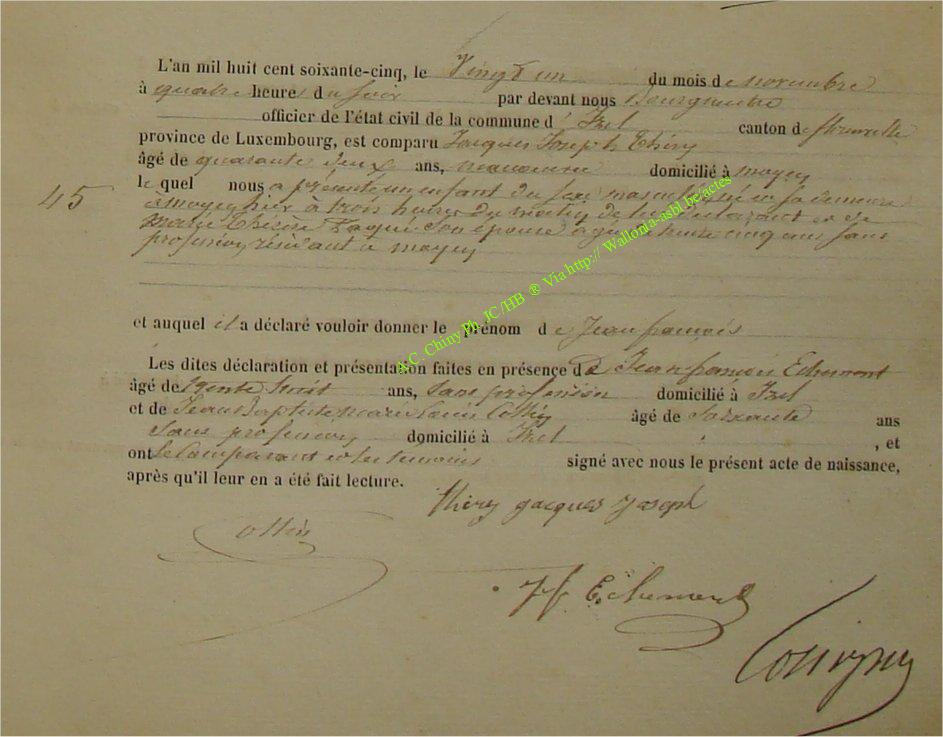 L'an mil huit cent soixante-cinq, le Vingt un du mois de novembre
à quatre heures du soir par devant nous Bourgmestre
officier de l'état civil de la commune d' Izel canton de florenville
province de Luxembourg, est comparu Jacques Joseph Thiry
âgé de quarante deux ans, manoeuvre domicilié à moyen
le quel nous a présenté un enfant du sexe masculin né en sa demeure
45
à moyen hier à trois heures du matin de lui déclarant et de
Marie Thérèse son épouse agée de trente cinq ans sans
profession, résidant à moyen
et auquel il a déclaré vouloir donner le prénom de Jean françois
Les dites déclaration et présentation faites en présence de Jean françois Echement
âgé de trente huit ans, sans profession domicilié à Izel
et de Jean Baptiste marie Louis Collin âgé de soixante ans
sans profession domicilié à Izel , et
ont le comparant et les temoins signé avec nous le présent acte de naissance,
après qu'il leur en a été fait lecture.
thiry jacques joseph
Collin
Jf Echement
A.C. Chiny Ph. JC/HB ® Via http:// Wallonia-asbl.be/actes